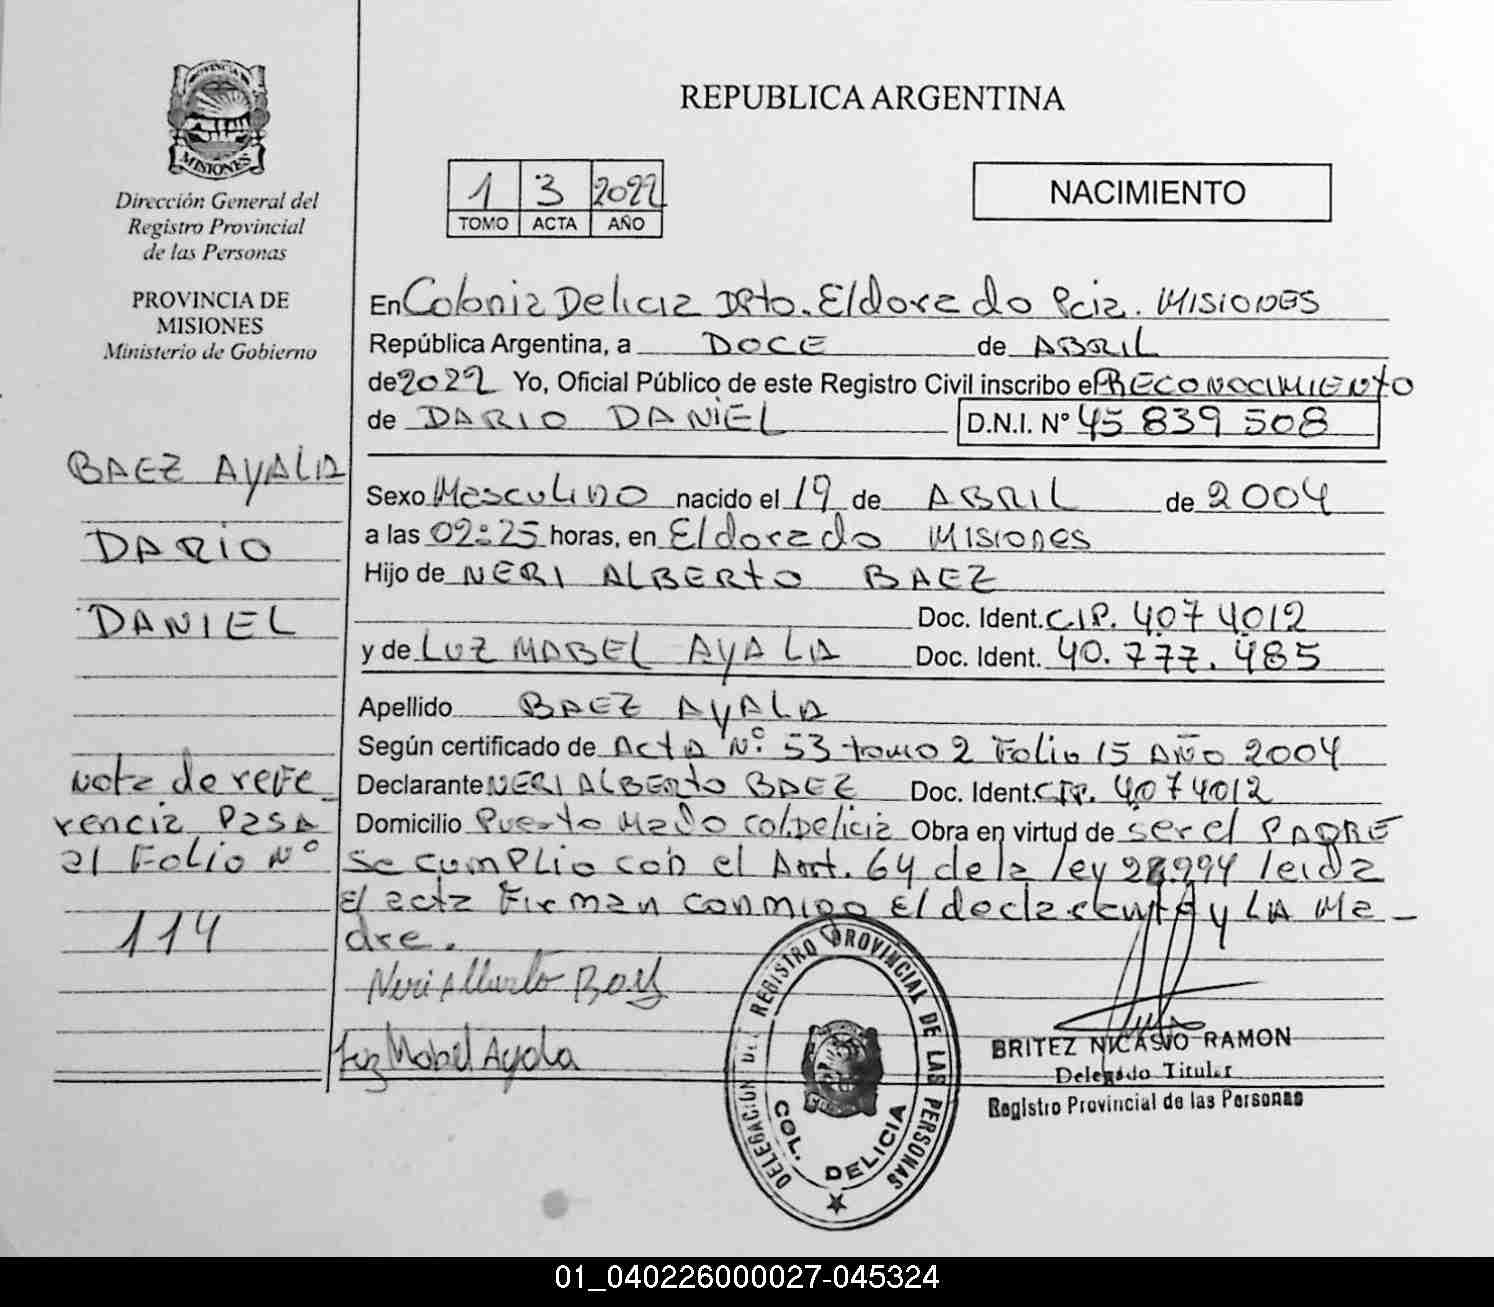 PROVINCIA DE
MISIONES
Dirección General del
Registro Provincial
de las Personas
PROVINCIA DE
MISIONES
Ministerio de Gobierno
BAEZ AYALA
DARIO
DANIEL
Nota de refe_
rencia PASA
al Folio Nº
114
REPUBLICA ARGENTINA
1 3 2022
TOMO ACTA AÑO
NACIMIENTO
En Colonia Delicia Dpto. Eldorado Pcia. MISIONES
República Argentina, a DOCE de ABRIL
de 2022 Yo, Oficial Público de este Registro Civil inscribo el RECONOCIMIENTO
de DARIO DANIEL D.N.I. Nº 45 839 508
Sexo Masculino nacido el 19 de ABRIL de 2004
a las 02:25 horas, en Eldorado Misiones
Hijo de NERI ALBERTO BAEZ
Doc. Ident. C.I.P. 4074012
y de LUZ MABEL AYALA Doc. Ident. 40.777.485
Apellido BAEZ AYALA
Según certificado de Acta Nº 53 tomo 2 Folio 15 AÑO 2004
Declarante NERI ALBERTO BAEZ Doc. Ident. CIP. 4074012
Domicilio Puerto Mado Col. Delicia Obra en virtud de ser el PADRE
Se cumplio con el Art. 64 de la ley leida
El acta Firman conmigo El declarante y LA Ma_
dre.
Neri Alberto Baez
Luz Mabel Ayala
DELEGACIÓN DEL REGISTRO PROVINCIAL DE LAS PERSONAS
COL. DELICIA
BRITEZ NICASIO RAMON
Delegado Titular
Registro Provincial de las Personas
01_040226000027-045324